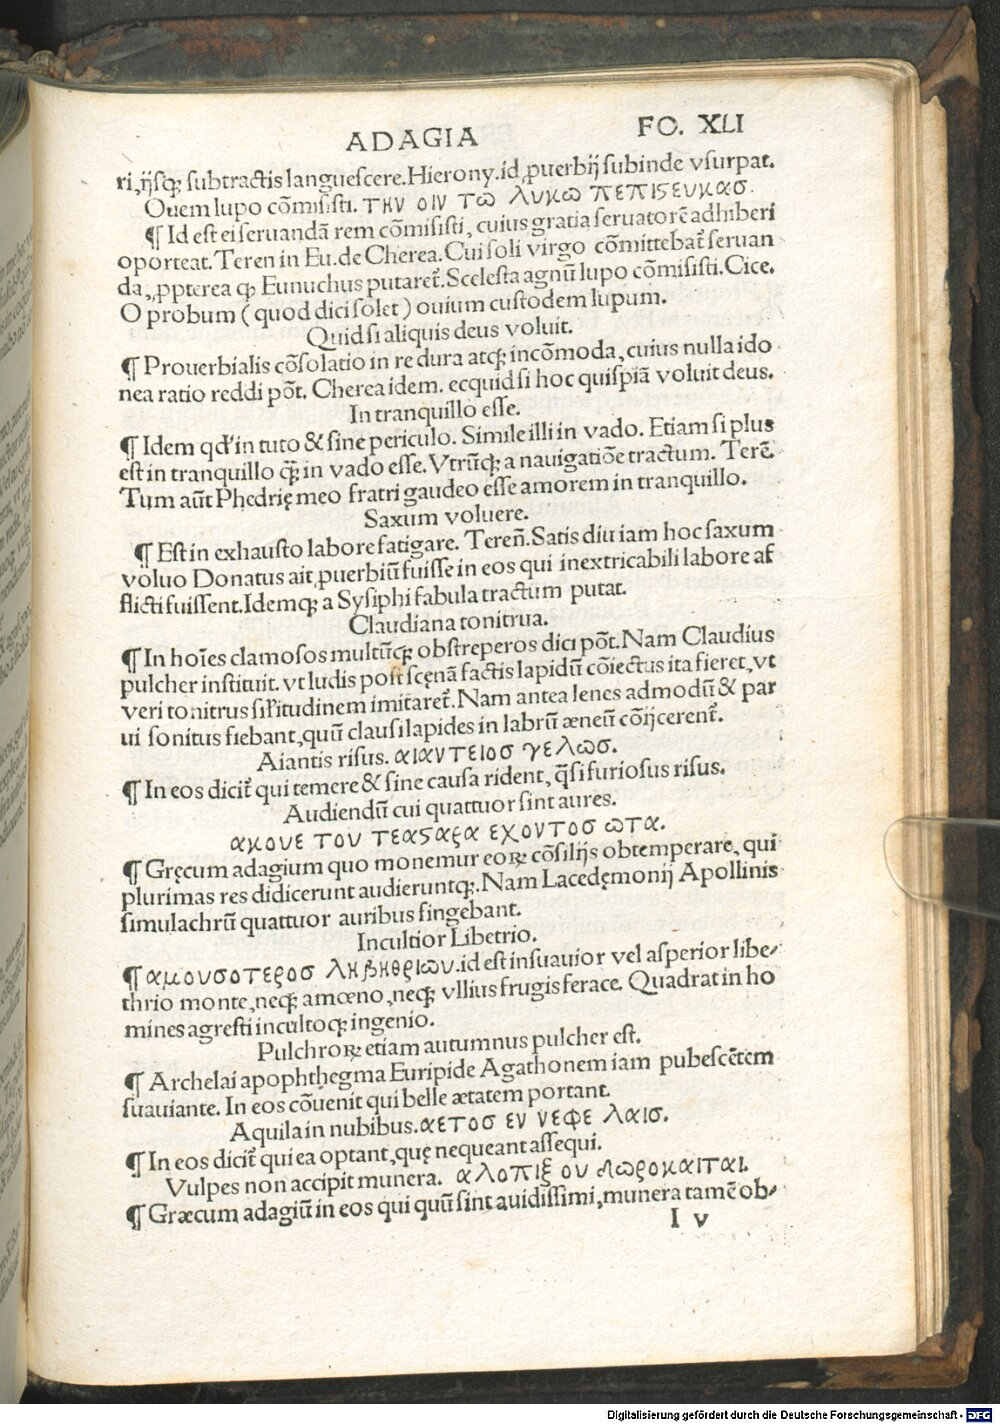 ADAGIA FO. XLI
ri, ijsq; subtractis languescere. Hierony. id ꝓuerbij subinde vsurpat.
Ouem lupo cōmisisti. τκν οιν τω λυκω πεπιϛευκασ.
¶ Id est ei seruandā rem cōmisisti, cuius gratia seruatorē adhiberi
oporteat. Teren in Eu. de Cherea. Cui soli virgo cōmittebat̄ seruan
da, ꝓpterea ꝙ Eunuchus putaret̄. Scelesta agnū lupo cōmisisti. Cice.
O probum ( quod dici solet ) ouium custodem lupum.
Quid si aliquis deus voluit.
¶ Prouerbialis cōsolatio in re dura atq; incōmoda, cuius nulla ido
nea ratio reddi pōt. Cherea idem. ecquid si hoc quispiā voluit deus.
In tranquillo esse.
¶ Idem qđ in tuto & sine periculo. Simile illi in vado. Etiam si plus
est in tranquillo q̄; in vado esse. Vtrūq; a nauigatiōe tractum. Terē.
Tum aūt Phedrię meo fratri gaudeo esse amorem in tranquillo.
Saxum voluere.
¶ Est in exhausto labore fatigare. Tereñ. Satis diu iam hoc saxum
voluo Donatus ait ꝓuerbiū fuisse in eos qui inextricabili labore af
flicti fuissent. Idemq; a Sysiphi fabula tractum putat.
Claudiana tonitrua.
¶ In hoīes clamosos multūq; obstreperos dici pōt. Nam Claudius
pulcher instituit. vt ludis post scęnā factis lapidū cōiectus ita fieret, vt
veri tonitrus sił'itudinem imitaret̄. Nam antea lenes admodū & par
ui sonitus fiebant, quū clausi lapides in labrū æneū cōijcerent̄.
Aiantis risus. αιαντειοσ γελωσ.
¶ In eos dicit̄ qui temere & sine causa rident, q̄si furiosus risus.
Audiendū cui quattuor sint aures.
ακουε του τεασαρα εχοντοσ ωτα.
¶ Gręcum adagium quo monemur eoꝝ cōsilijs obtemperare, qui
plurimas res didicerunt audieruntq;. Nam Lacedęmonij Apollinis
simulachrū quattuor auribus fingebant.
Incultior Libetrio.
¶ αμουσοτεροσ ληβηθριων. id est insuauior vel asperior libe-
thrio monte, neq; amœno, neq; vllius frugis ferace. Quadrat in ho
mines agresti incultoq; ingenio.
Pulchroꝝ etiam autumnus pulcher est.
¶ Archelai apophthegma Euripide Agathonem iam pubescētem
suauiante. In eos cōuenit qui belle ætatem portant.
Aquila in nubibus. αετοσ εν νεφε λαισ.
¶ In eos dicit̄ qui ea optant, quę nequeant assequi.
Vulpes non accipit munera. αλοπιξ ου δωροκαιται.
¶ Græcum adagiū in eos qui quū sint auidissimi, munera tamē ob-
I v
Digitalisierung gefördert durch die Deutsche Forschungsgemeinschaft - DFG